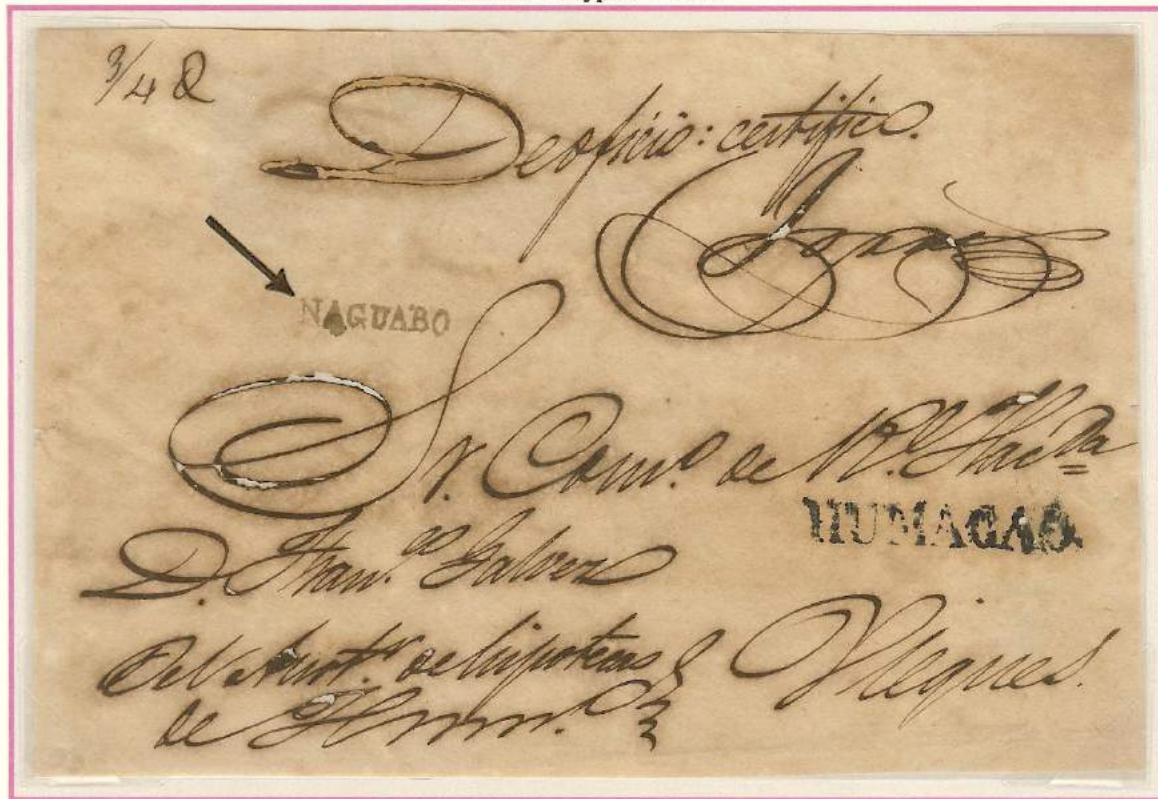 3/4 
De oficio: certifico.
NAGUABO
Sr. Com.º de Rl. Hacda
HUMACAO.
D. Fran.co Galvez
Del Anot.r de hipotecas
de Hum.º
Vieques.